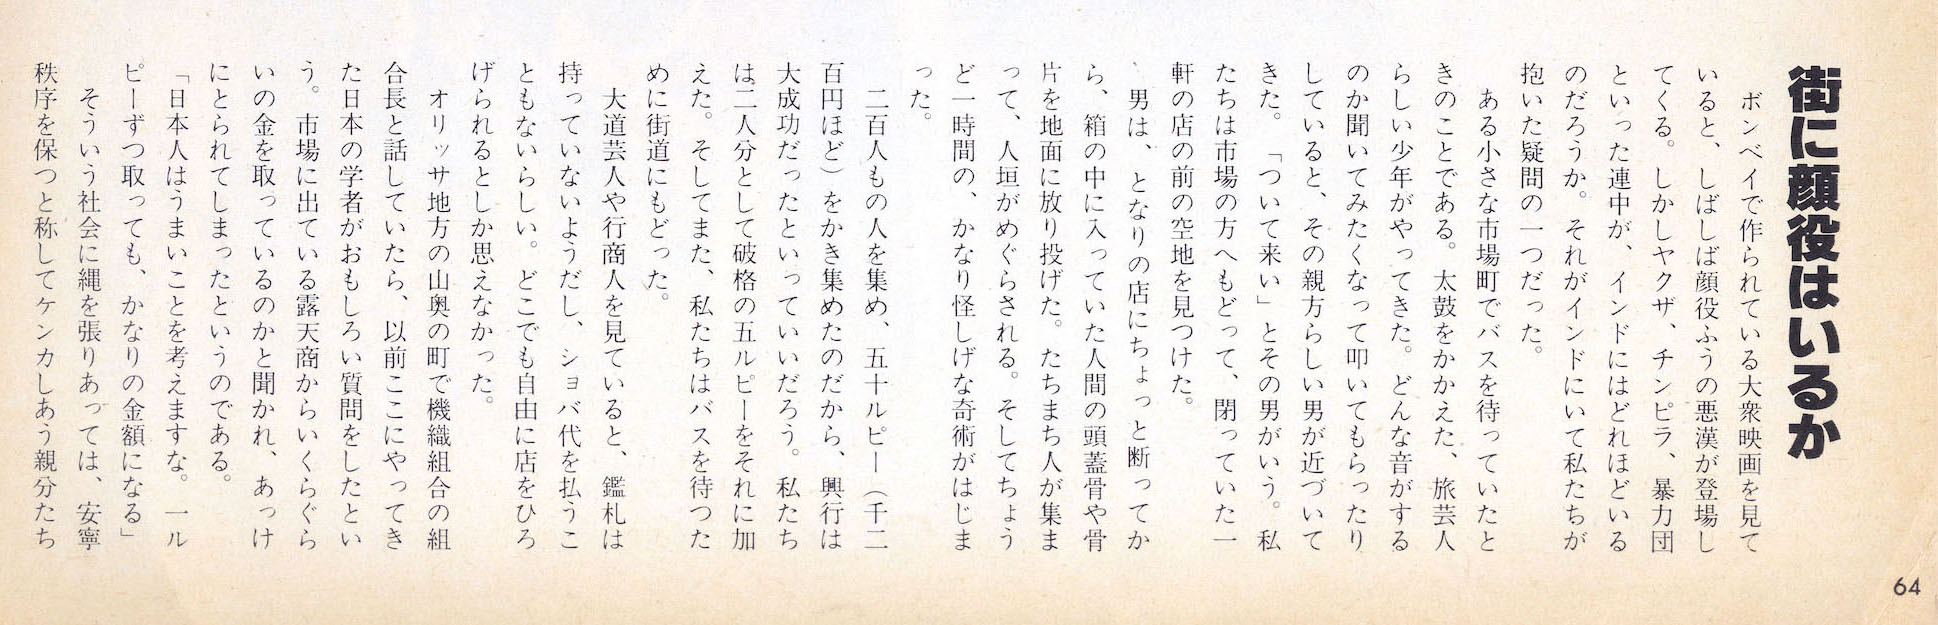 街に顔役はいるか
ボンベイで作られている大衆映画を見て
いると、しばしば顔役ふうの悪漢が登場し
てくる。しかしヤクザ、チンピラ、暴力団
といった連中が、インドにはどれほどいる
のだろうか。それがインドにいて私たちが
抱いた疑問の一つだった。
ある小さな市場町でバスを待っていたと
きのことである。太鼓をかかえた、旅芸人
らしい少年がやってきた。どんな音がする
のか聞いてみたくなって叩いてもらったり
していると、その親方らしい男が近づいて
きた。「ついて来い」とその男がいう。私
たちは市場の方へもどって、閉っていた一
軒の店の前の空地を見つけた。
男は、となりの店にちょっと断ってか
ら、箱の中に入っていた人間の頭蓋骨や骨
片を地面に放り投げた。たちまち人が集ま
って、人垣がめぐらされる。そしてちょう
ど一時間の、かなり怪しげな奇術がはじま
った。
二百人もの人を集め、五十ルピー（千二
百円ほど）をかき集めたのだから、興行は
大成功だったといっていいだろう。私たち
は二人分として破格の五ルピーをそれに加
えた。そしてまた、私たちはバスを待つた
めに街道にもどった。
大道芸人や行商人を見ていると、鑑札は
持っていないようだし、ショバ代を払うこ
ともないらしい。どこでも自由に店をひろ
げられるとしか思えなかった。
オリッサ地方の山奥の町で機織組合の組
合長と話していたら、以前ここにやってき
た日本の学者がおもしろい質問をしたとい
う。市場に出ている露天商からいくらぐら
いの金を取っているのかと聞かれ、あっけ
にとられてしまったというのである。
「日本人はうまいことを考えますな。一ル
ピーずつ取っても、かなりの金額になる」
そういう社会に縄を張りあっては、安寧
秩序を保つと称してケンカしあう親分たち
64